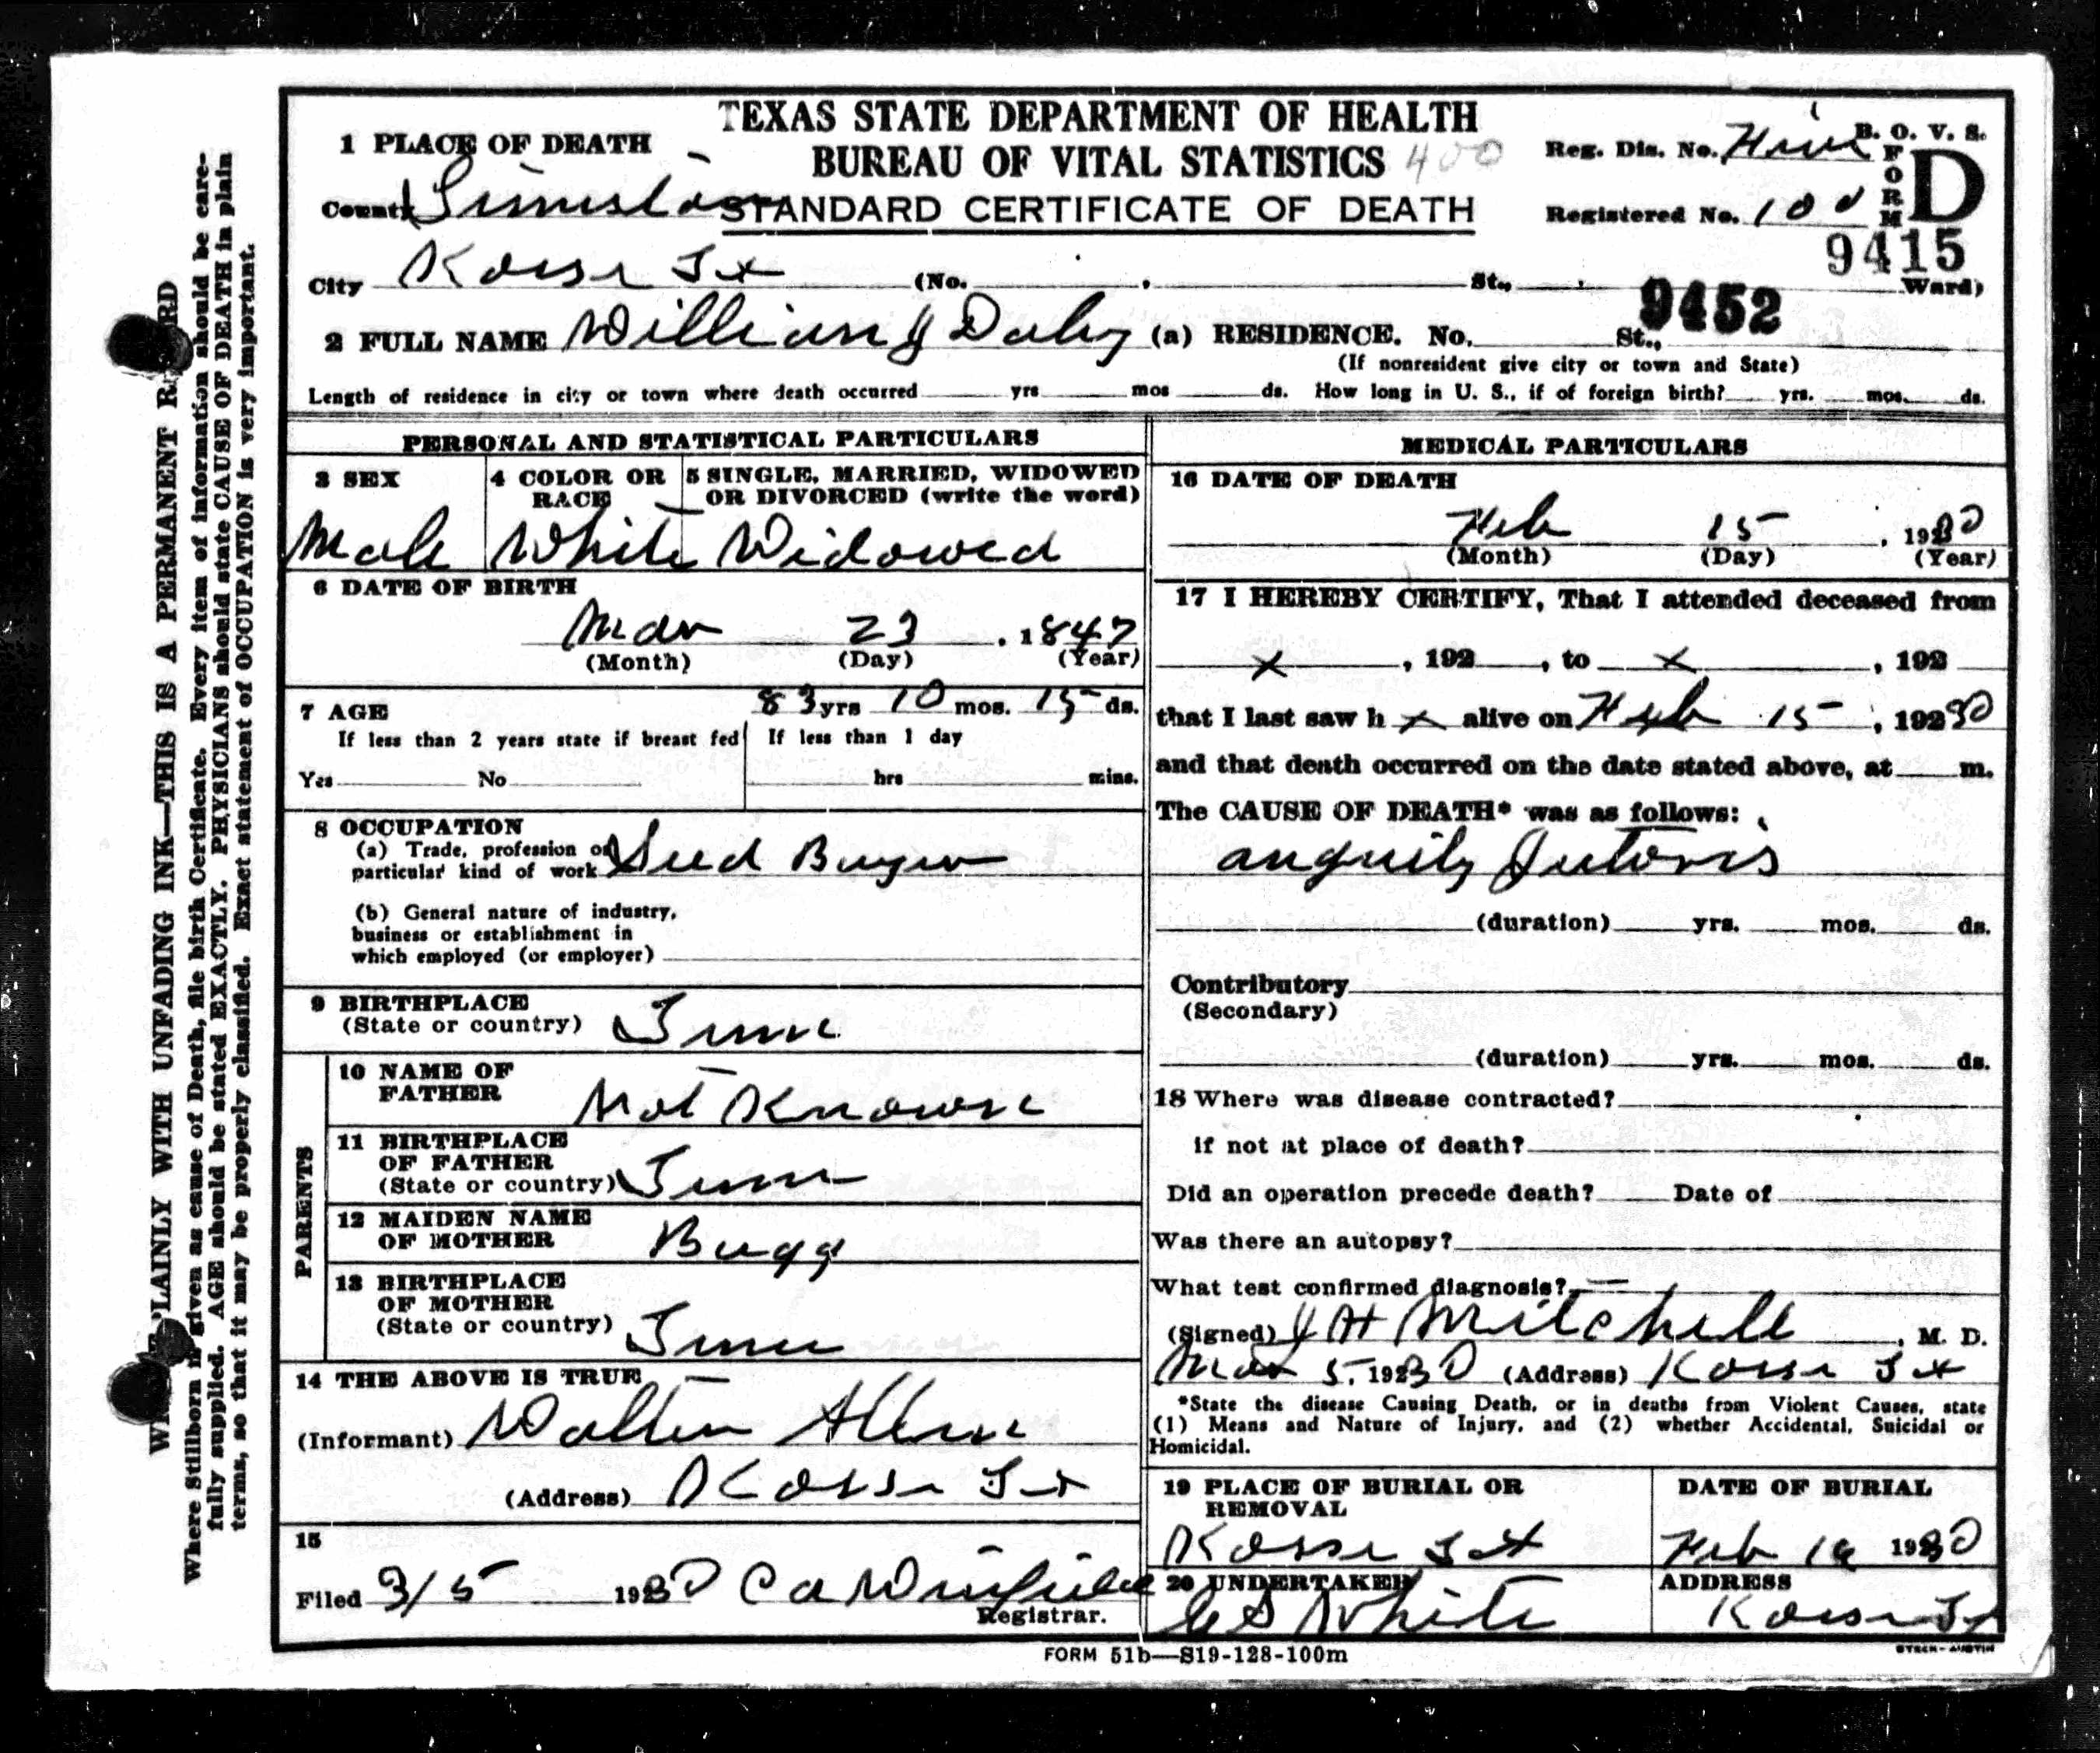 TEXAS STATE DEPARTMENT OF HEALTH
BUREAU OF VITAL STATISTICS 400
STANDARD CERTIFICATE OF DEATH
1 PLACE OF DEATH
County Limestone
City Kosse Tx (No. St., Ward)
Reg. Dis. No. Five B. O. V. S.
FORM D
Registered No. 100
9415
9452
2 FULL NAME William J Daly (a) RESIDENCE. No. St.,
(If nonresident give city or town and State)
Length of residence in city or town where death occurred yrs mos ds. How long in U. S., if of foreign birth? yrs. mos. ds.
PERSONAL AND STATISTICAL PARTICULARS
3 SEX
Male
4 COLOR OR RACE
White
5 SINGLE, MARRIED, WIDOWED
OR DIVORCED (write the word)
Widowed
6 DATE OF BIRTH
Mar 23, 1847
(Month) (Day) (Year)
7 AGE 83 yrs 10 mos. 15 ds.
If less than 2 years state if breast fed
Yes No
If less than 1 day
hrs mins.
8 OCCUPATION
(a) Trade, profession or
particular kind of work Seed Buyer
(b) General nature of industry,
business or establishment in
which employed (or employer)
9 BIRTHPLACE
(State or country) Tenn
PARENTS
10 NAME OF
FATHER Not Known
11 BIRTHPLACE
OF FATHER
(State or country) Tenn
12 MAIDEN NAME
OF MOTHER Bugg
13 BIRTHPLACE
OF MOTHER
(State or country) Tenn
14 THE ABOVE IS TRUE
(Informant) Walter Allen
(Address) Kosse Tx
15
Filed 3/5 1930 C A Winfield
Registrar.
MEDICAL PARTICULARS
16 DATE OF DEATH
Feb 15, 1930
(Month) (Day) (Year)
17 I HEREBY CERTIFY, That I attended deceased from
x, 192 , to x, 192
that I last saw h x alive on Feb 15, 19230
and that death occurred on the date stated above, at m.
The CAUSE OF DEATH* was as follows:
(duration) yrs. mos. ds.
Contributory
(Secondary)
(duration) yrs. mos. ds.
18 Where was disease contracted?
if not at place of death?
Did an operation precede death? Date of
Was there an autopsy?
What test confirmed diagnosis? —
(Signed) J H Mitchell, M. D.
Mar 5, 1930 (Address) Kosse Tx
*State the disease Causing Death, or in deaths from Violent Causes, state
(1) Means and Nature of Injury, and (2) whether Accidental, Suicidal or
Homicidal.
19 PLACE OF BURIAL OR
REMOVAL
Kosse Tx
DATE OF BURIAL
Feb 16 1930
20 UNDERTAKER
White
ADDRESS
Kosse Tx
FORM 51b—S19-128-100m
STECK-AUSTIN
PLAINLY WITH UNFADING INK—THIS IS A PERMANENT
Where Stillborn is given as cause of Death, file birth Certificate. Every item of information should be care-
fully supplied. AGE should be stated EXACTLY. PHYSICIANS should state CAUSE OF DEATH in plain
terms, so that it may be properly classified. Exact statement of OCCUPATION is very important.